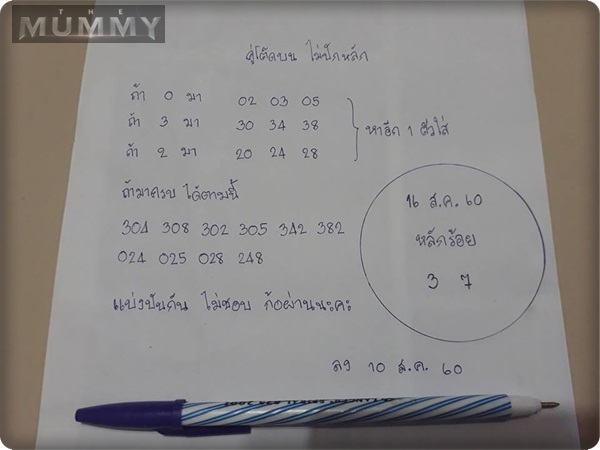 THE
MUMMY
คู่โต๊ดบน ไม่ปักหลัก
ถ้า 0 มา 02 03 05
ถ้า 3 มา 30 34 38
ถ้า 2 มา 20 24 28
หาอีก 1 ตัวใส่
ถ้ามาครบ ได้ตามนี้
304 308 302 305 342 382
024 025 028 248
16 ส.ค. 60
หลักร้อย
3 7
แบ่งปันกัน ไม่ชอบ ก้อผ่านนะคะ
ลง 10 ส.ค. 60